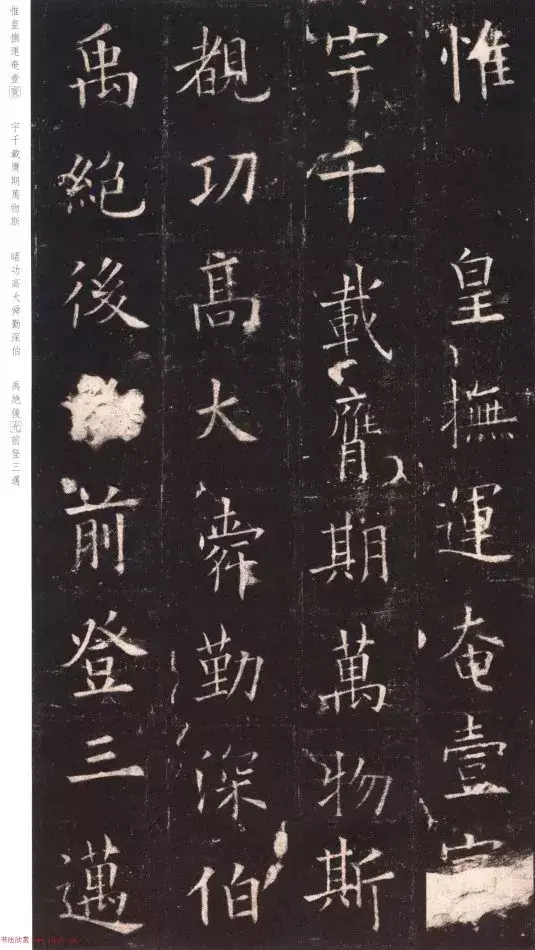 惟皇撫運奄壹
宇千載膺期萬物斯
覩功高大舜勤深伯
禹絕後前登三邁
惟皇撫運奄壹寰 宇千載膺期萬物斯 睹功高大舜勤深伯 禹絕後光前登三邁